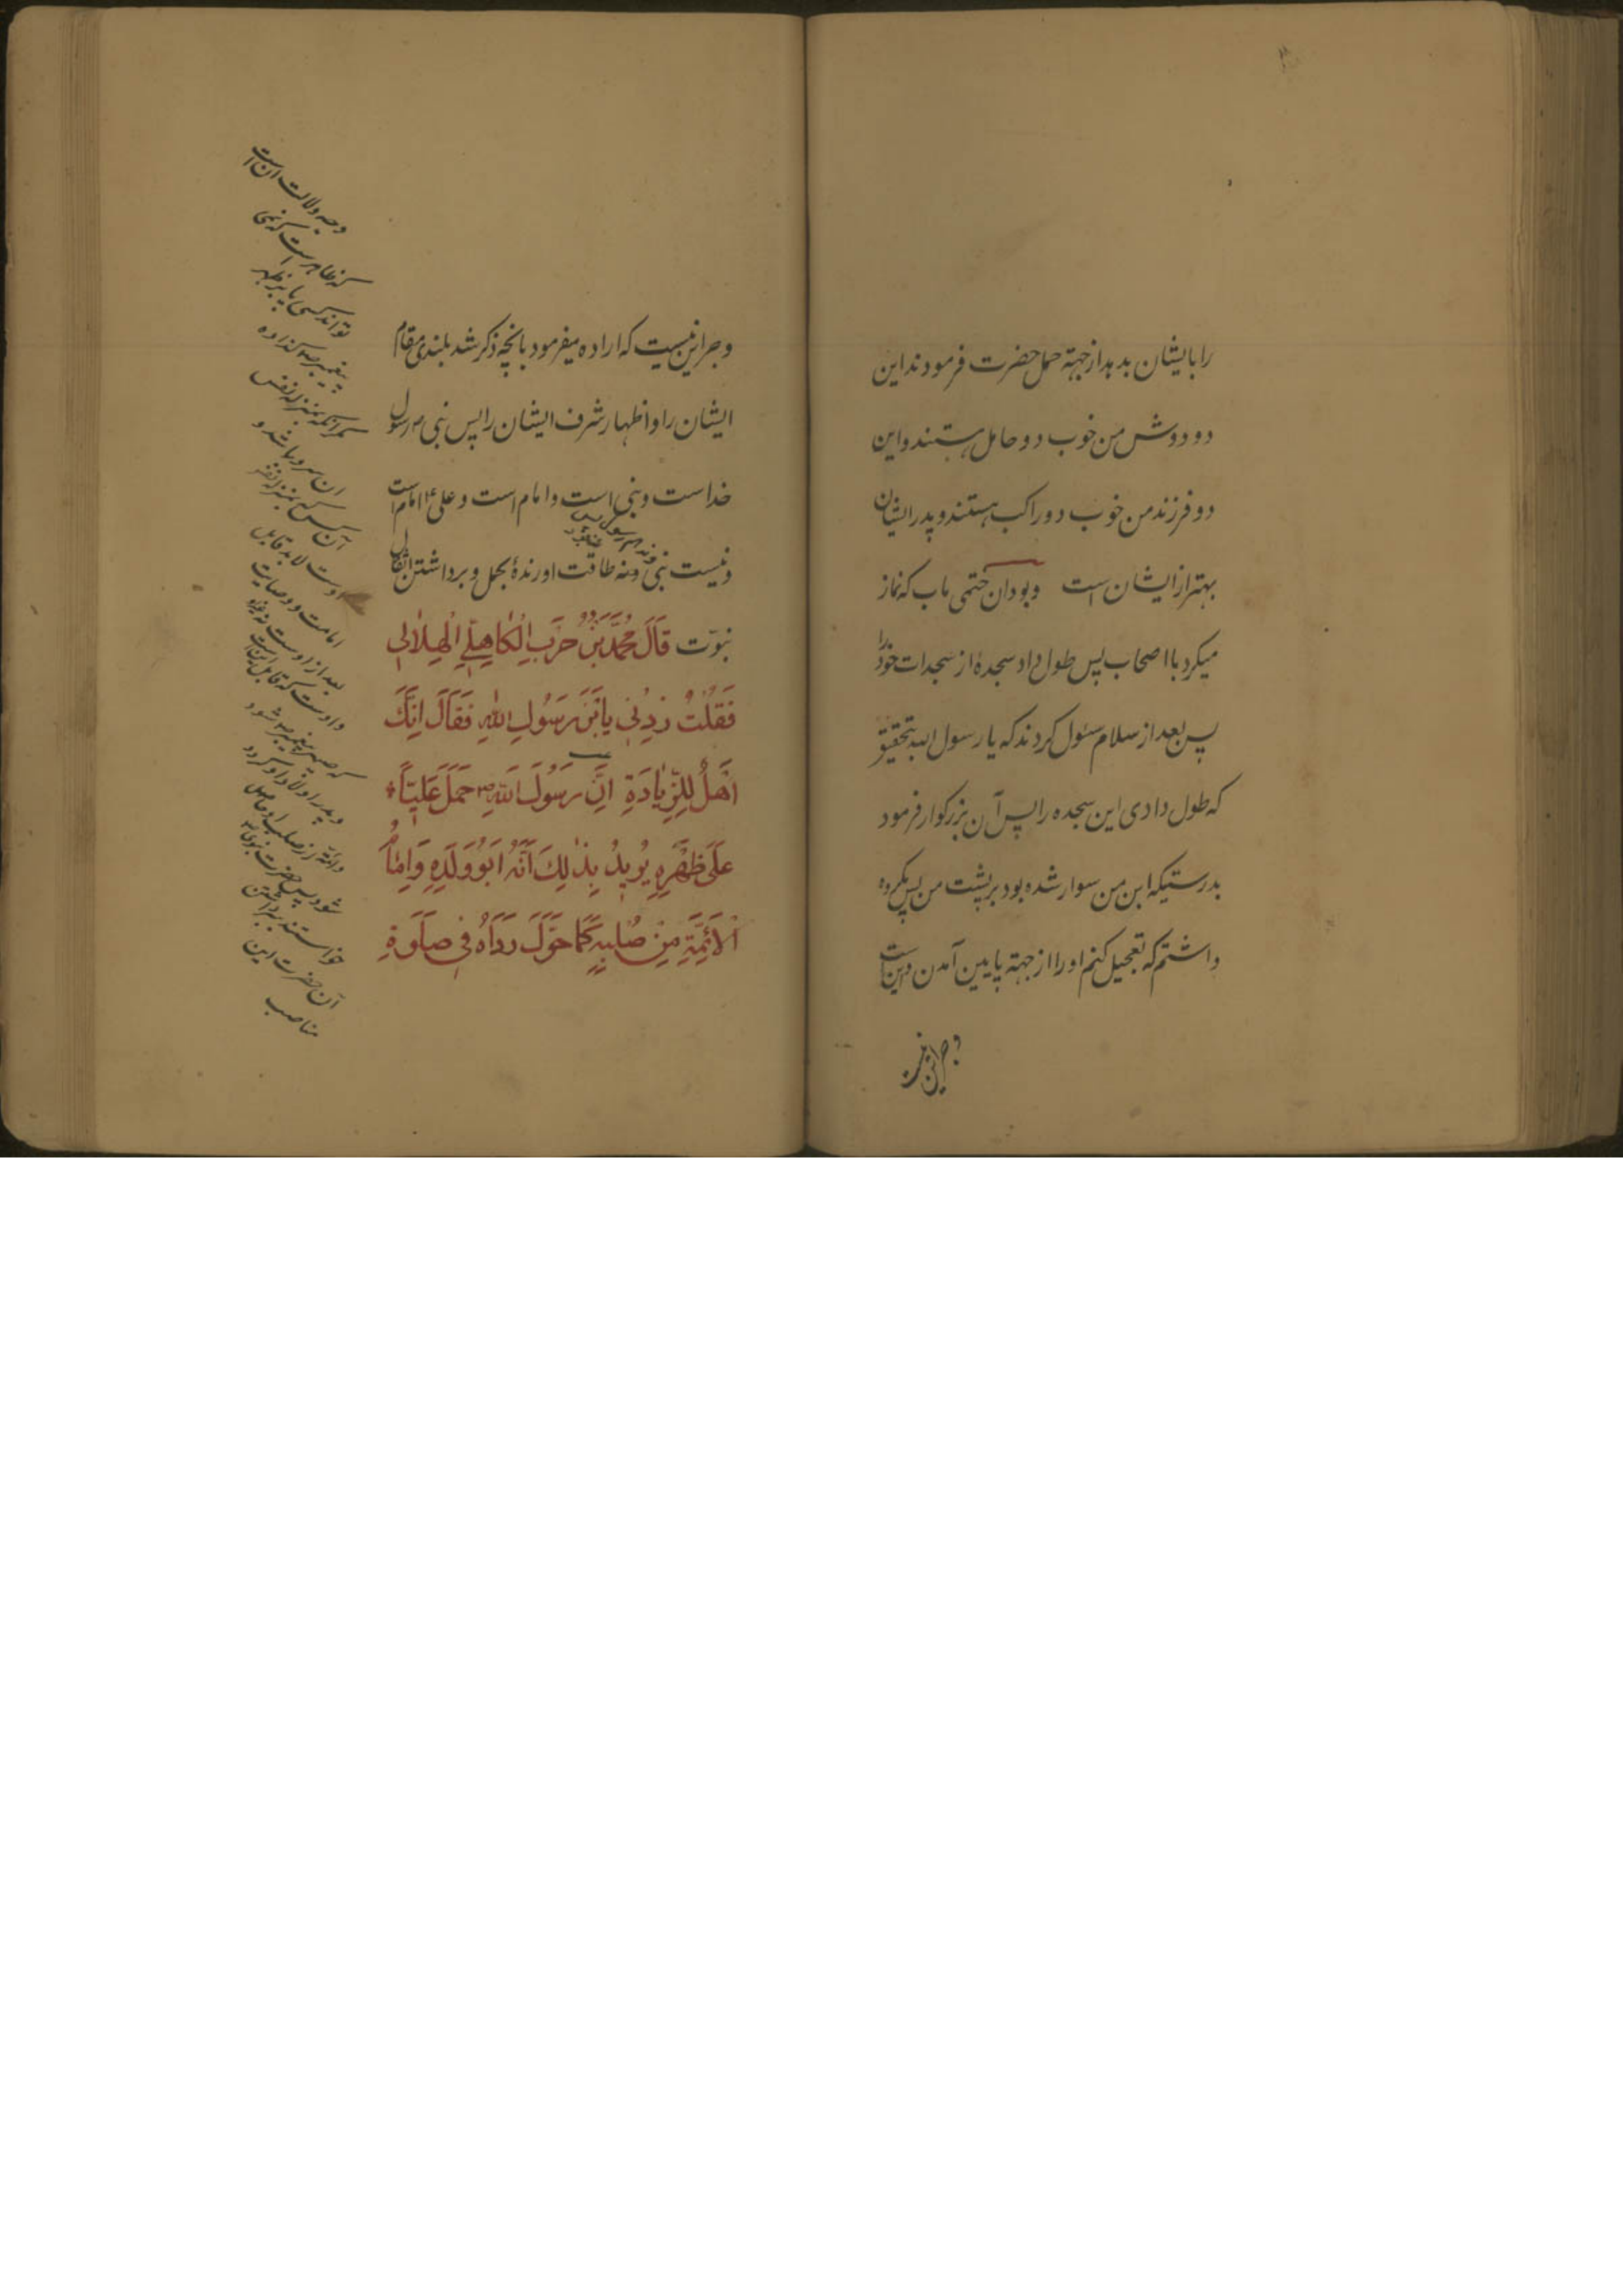 را بایشان بدهد از جهتة حمل حضرت فرمودند این
دو دوش من خوب دو حامل هستند و این
دو فرزند من خوب دو راکب هستند و پدر ایشان
بهتر از ایشان است و بود ان ختمی ماب که نماز
میکرد با اصحاب پس طول داد سجدهٔ از سجدات خود را
پس بعد از سلام سئول کردند که یا رسول الله بتحقیق
که طول دادی این سجده را پس آن بزرکوار فرمود
بدرستیکه ابن من سوار شده بود بر پشت من پس مکروه
داشتم که تعجیل کنم او را از جهتة پایین آمدن و این است
و جز این نیست
و جز این نیست که اراده میفرمود بانچه ذکر شد بلندی مقام
ایشان را و اظهار شرف ایشان را پس نبی ص رسول
خداست و نبی است و امام است و علی ع امام است
و نیست نبی و نه رسول پس
و نه طاقت اورندهٔ بحمل و برداشتن اثقال
نبوّت قَالَ مُحَمَّدُ بْنُ حَرْبِ الْکَاهِلِیِّ الْهِلَالِی
فَقُلْتُ زِدْنِی یَا بْنَ رَسُولِ اللهِ فَقَالَ اِنَّکَ
اَهْلٌ لِلزِّیَادَةِ اِنَّ رَسُولَ اللهِ ص حَمَلَ عَلِیّاً
عَلَی ظَهْرِهِ یُرِیدُ بِذٰلِکَ اَنَّهُ اَبُو وَلَدِهِ وَاِمَامُ
الْاَئِمَّةِ مِنْ صُلْبِهِ کَمَا حَوَّلَ رِدَاهُ فِی صَلٰوةِ
وجه دلالت ان است
که ظاهر است که نمی
تواند کسی پا بر ظهر
پیغمبر ص گذارده
مگر انکه بمنزله نفس
ان سرور باشد و
آن کس که بمنزله نفس
اوست لابد قابل
امامت و وصایت
بعد از اوست
و اوست که قابل این است
که صهر پیغمبر ص شود
و پدر اولاد او کردد
و ائمّه از صلب او حاصل
شود پس حضرت نبوی ص
خواستند به برداشتن
آن حضرت این
مناصب